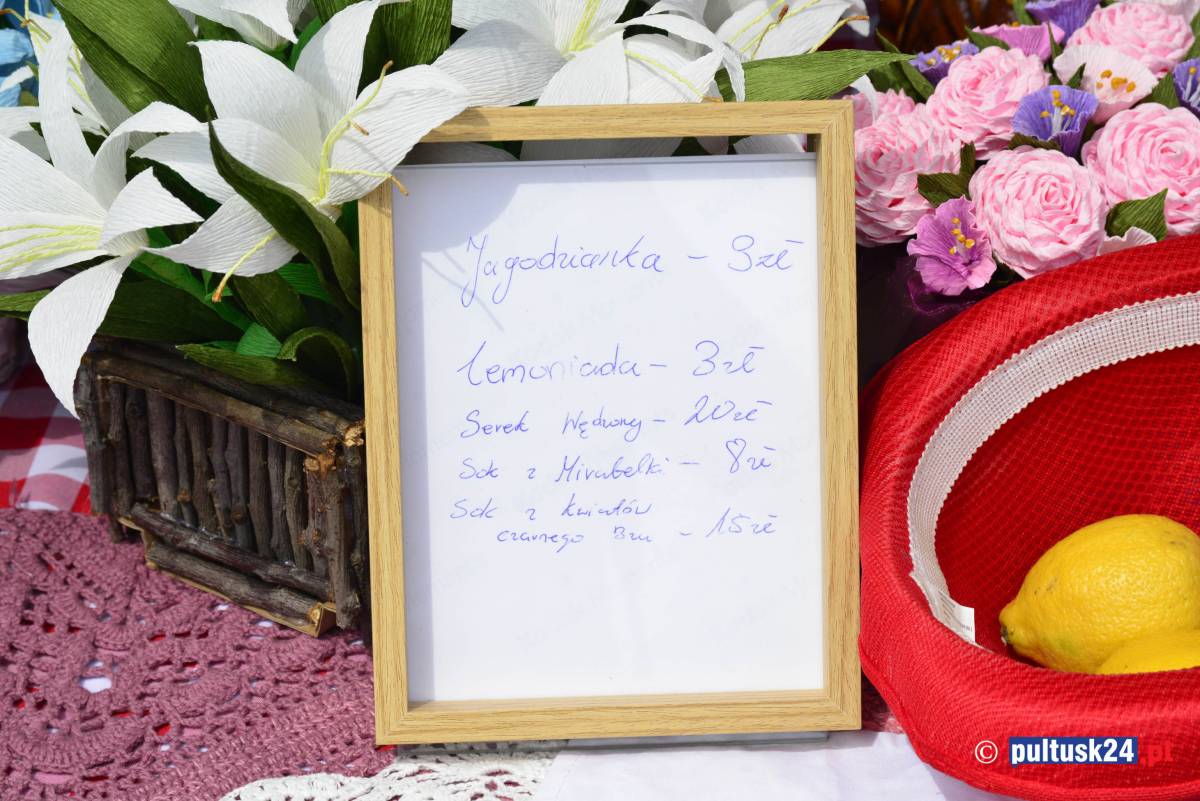 Jagodzianka - 3zł
Lemoniada - 3zł
Serek Wędzony - 20zł
Sok z Mirabelki - 8zł
Sok z kwiatów
czarnego Bzu - 15zł
© pultusk24.pl